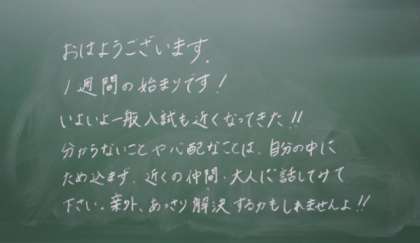 おはようございます.
1週間の始まりです!
いよいよ一般入試も近くなってきた!!
分からないことや心配なことは、自分の中に
ため込まず、近くの仲間・大人に話してみて
下さい。案外、あっさり解決するかもしれませんよ!!